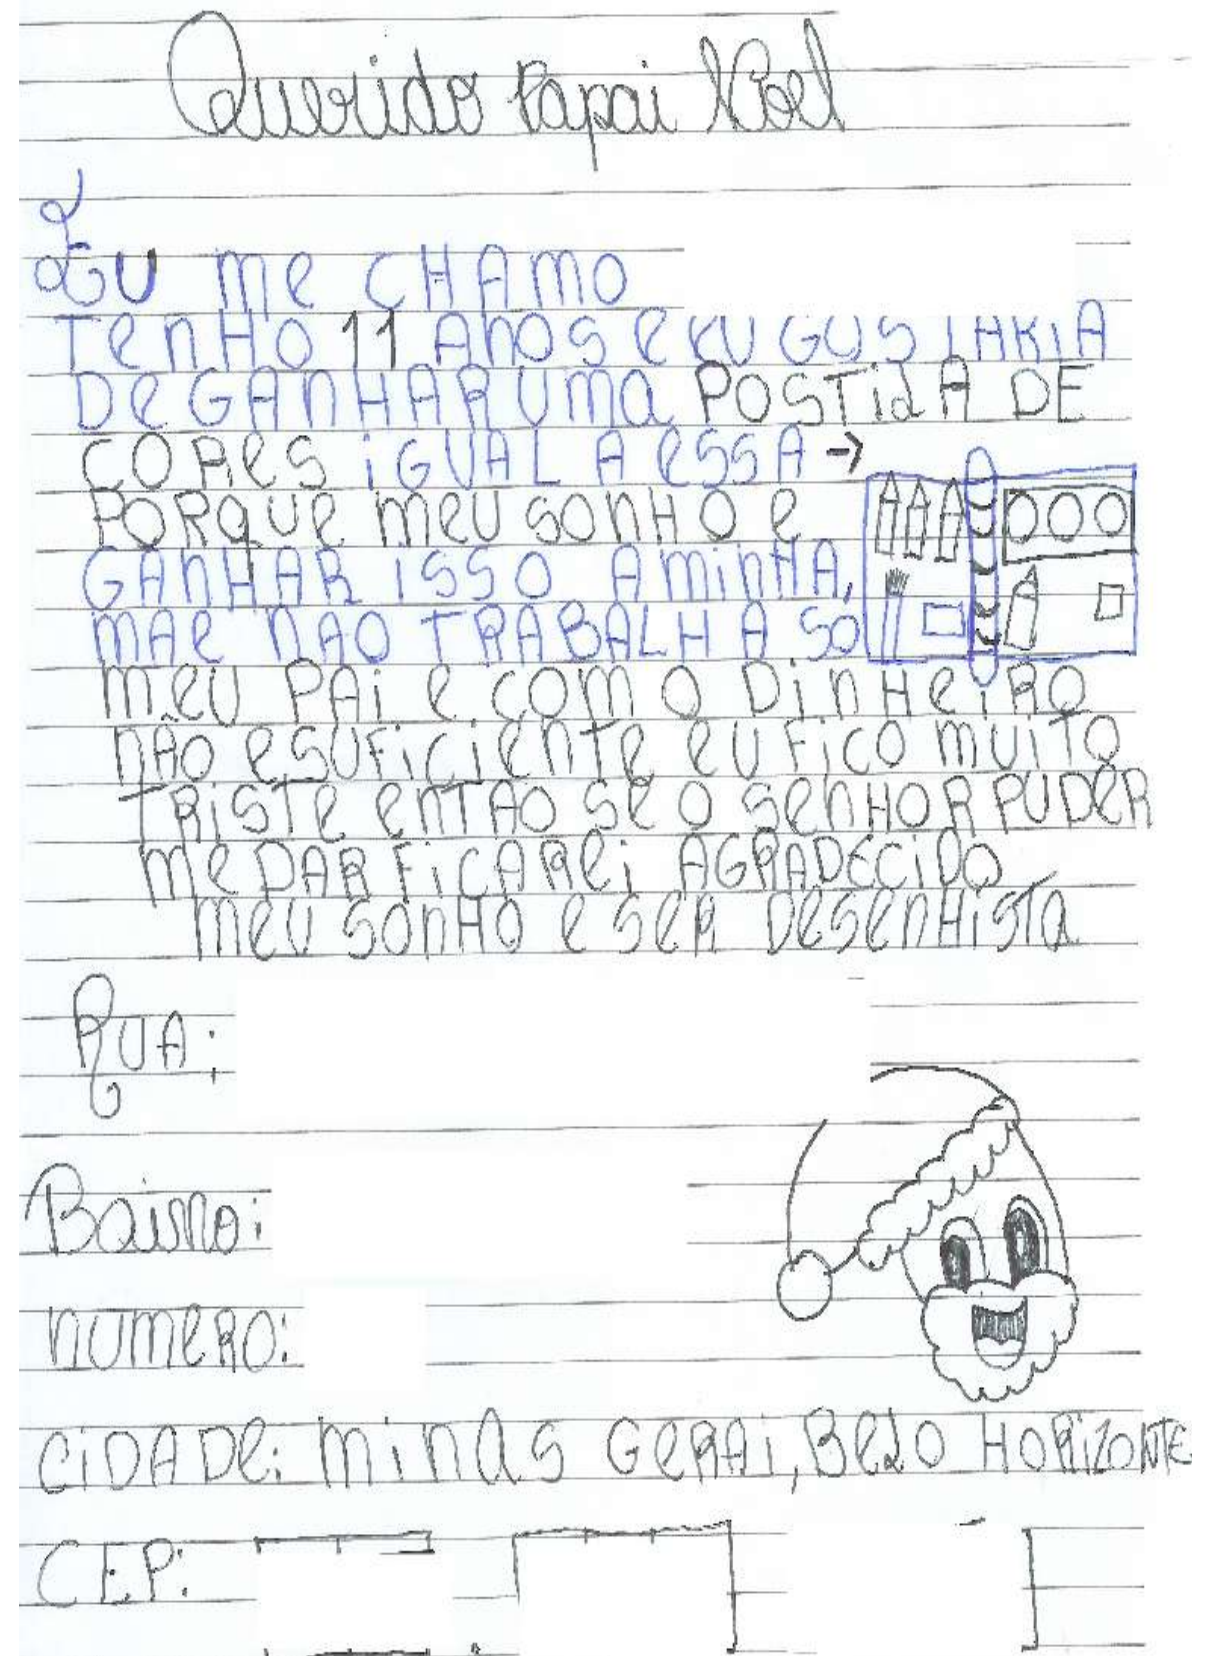 Querido Papai Noel
EU me CHAMO
TENHO 11 ANOS E EU GOSTARIA
De GANHAR UMA POSTilA DE
CORES iGUAL A ESSA →
PORQUE MEU SONHO e
GANHAR ISSO A MINHA,
MAE NAO TRABALHA SO
MEU PAi e COM O DiNHeiRO
NÃO e SUFiCiENTE EU FiCO MUiTO
TRiSTE ENTAO SE O SENHOR PUDER
ME DAR FiCAREi AGRADECiDO
MEU SONHO e SER DESENHiSTA
RUA:
Bairro:
NUMERO:
CiDADE: MiNAS GERAi, BELO HORiZONTE
CEP: